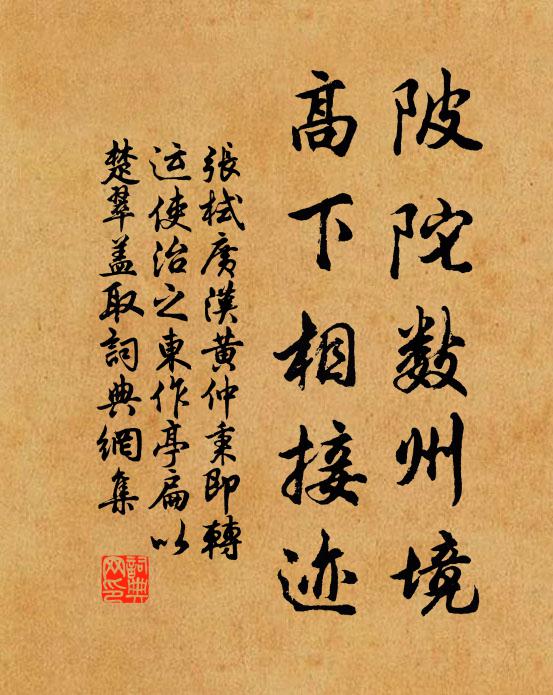 陂陀数州境
高下相接迹
張栻廣漢黄仲秉即轉
运使治之東作亭扁以
楚翠盖取詞典網集
詞典网印